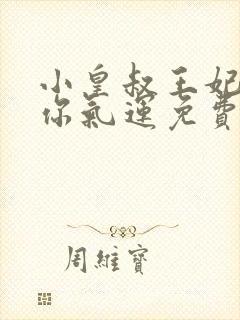 小皇叔王妃
你氣運免費
周維寶